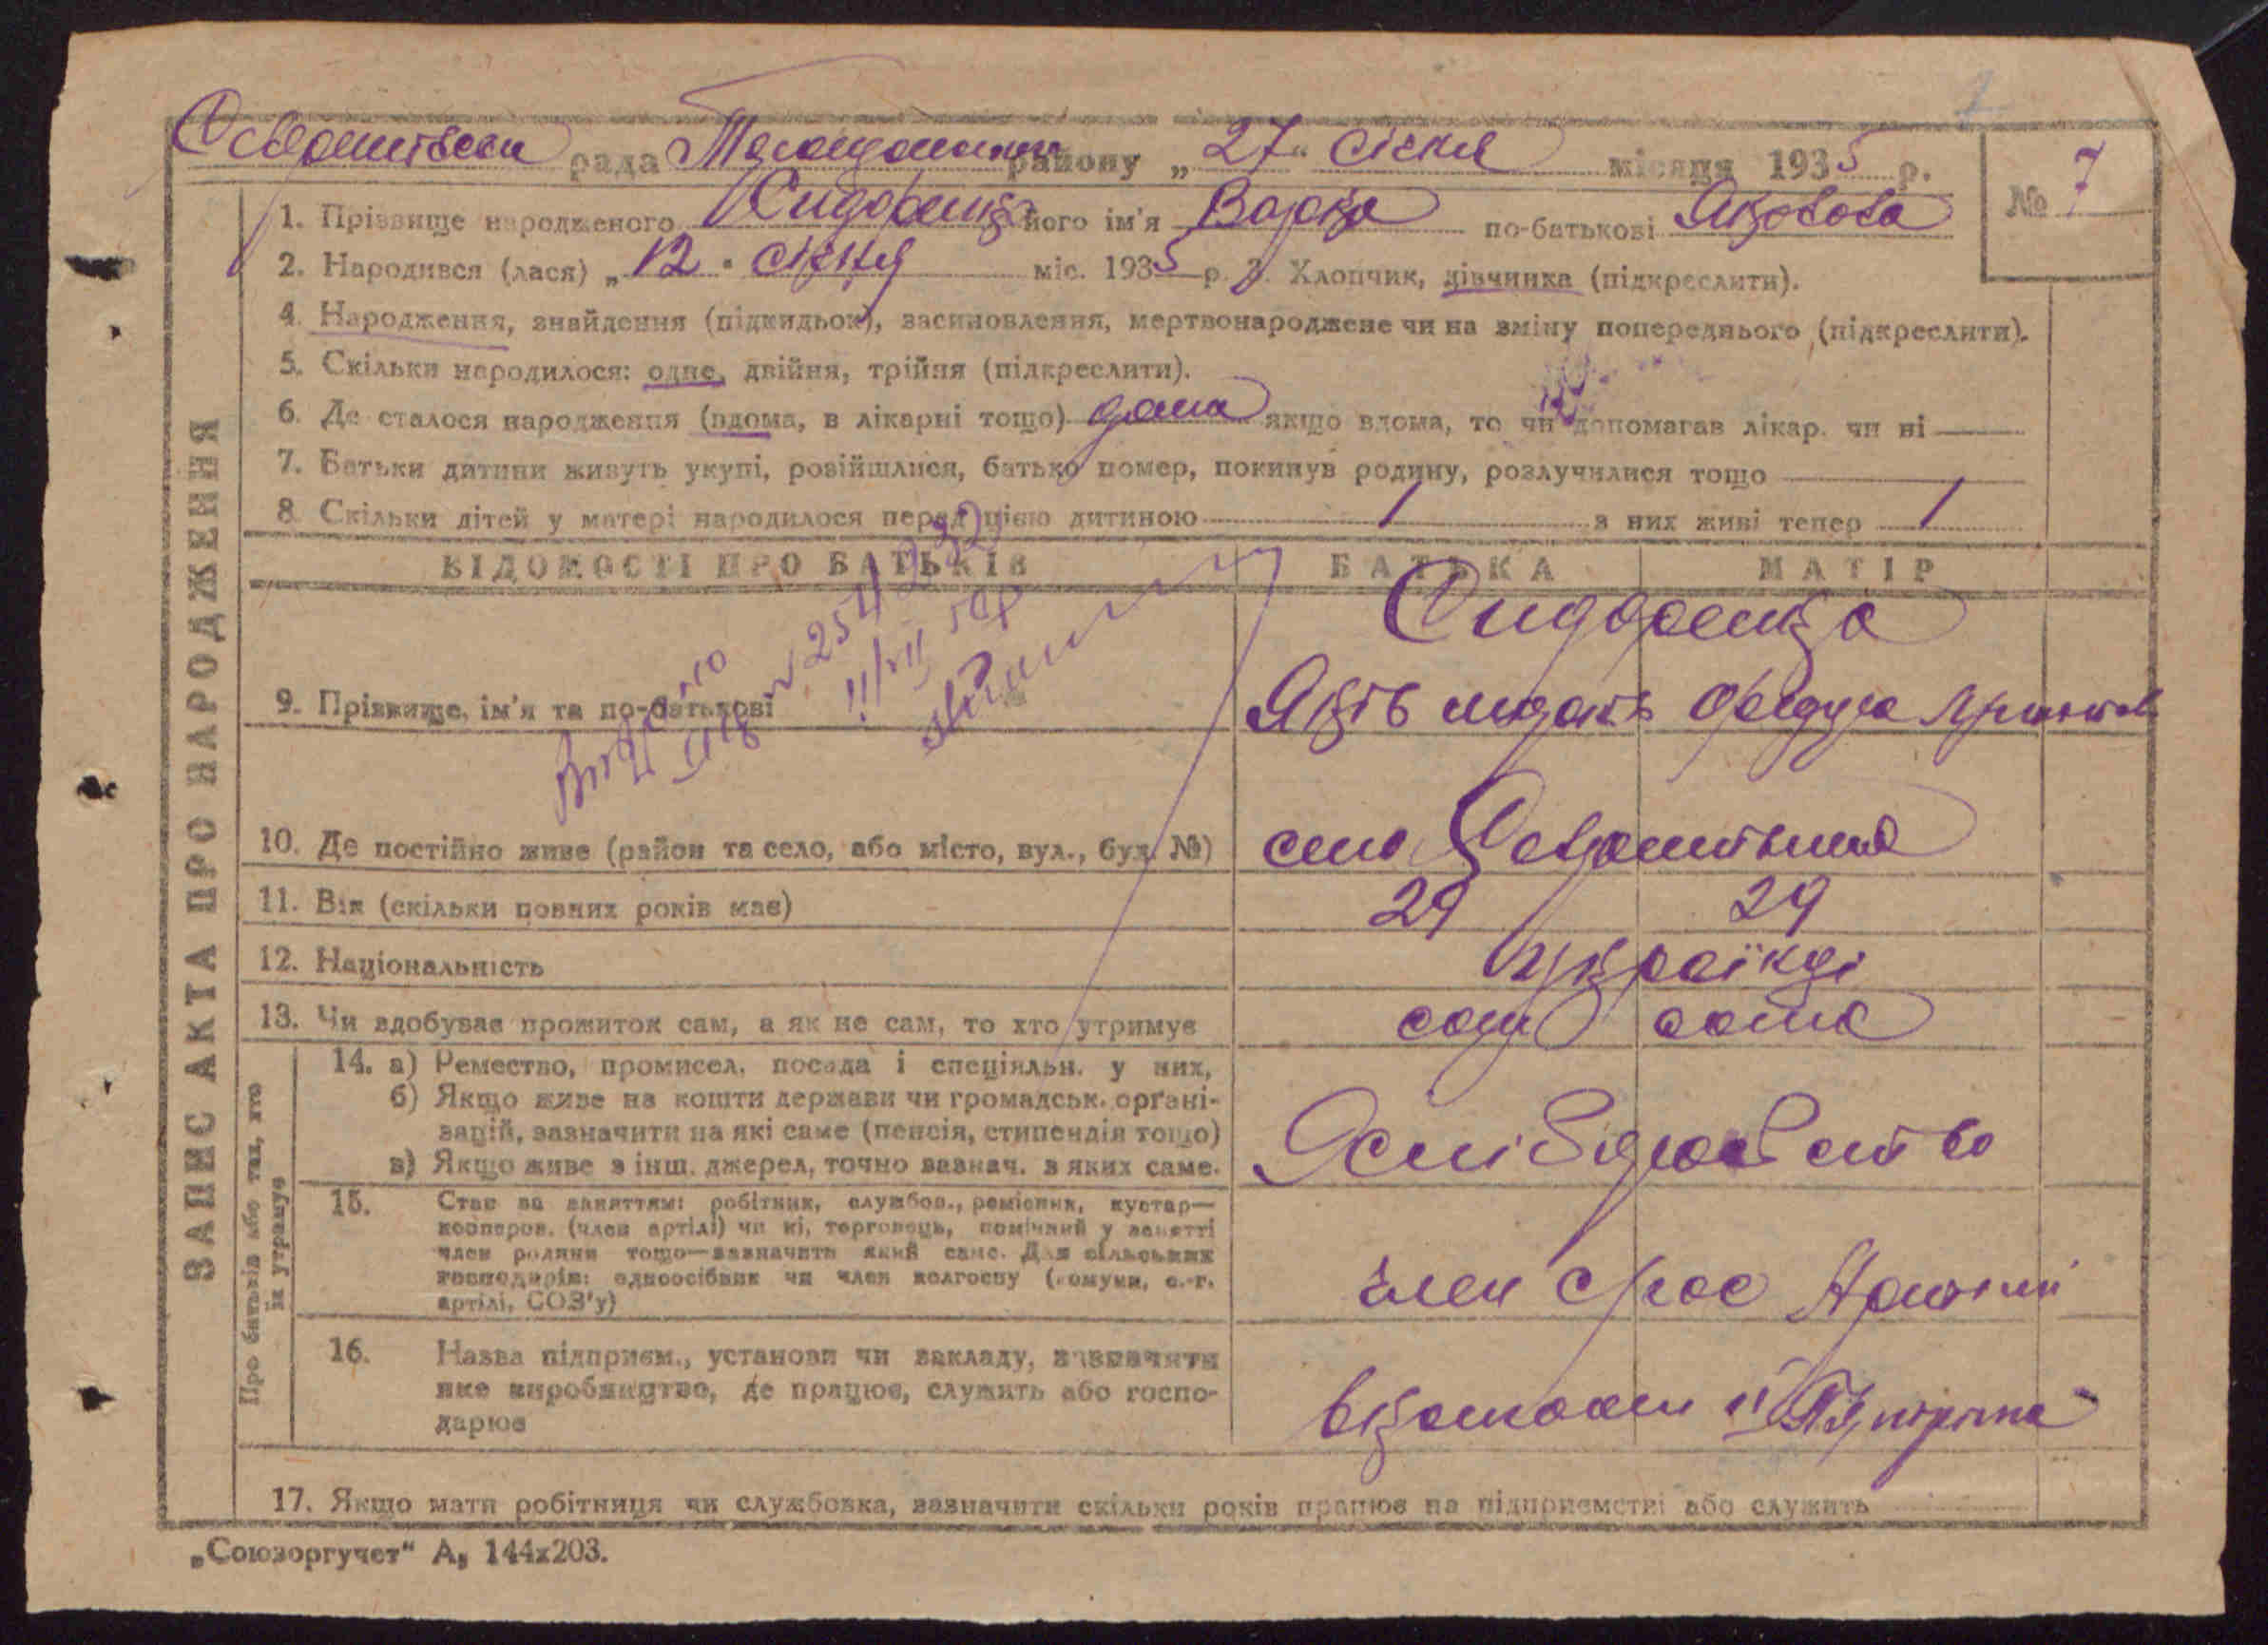 рада району „ 27 “ січня місяця 1935 р.
№ 7
1. Прізвище народженого Сидоренко його ім'я Варка по-батькові Яковова
2. Народився (лася) „ 12 " січня міс. 1935 р. 3. Хлопчик, дівчинка (підкреслити).
4. Народження, знайдення (підкидьок), засиновлення, мертвонароджене чи на зміну попереднього (підкреслити).
5. Скільки народилося: одне, двійня, трійня (підкреслити).
6. Де сталося народження (вдома, в лікарні тощо) дома якщо вдома, то чи допомагав лікар. чи ні
7. Батьки дитини живуть укупі, розійшлися, батько помер, покинув родину, розлучилися тощо
8. Скільки дітей у матері народилося перед цією дитиною 1 з них живі тепер 1
ЗАПИС АКТА ПРО НАРОДЖЕННЯ
ВІДОМОСТІ ПРО БАТЬКІВ БАТЬКА МАТІР
Сидоренко
9. Прізвище, ім'я та по-батькові Яків
10. Де постійно живе (район та село, або місто, вул., буд. №) село
11. Вік (скільки повних років має) 29 29
12. Національність Українці
13. Чи здобуває прожиток сам, а як не сам, то хто утримує сам сама
Про батьків або тих, хто їх утримує
14. а) Ремество, промисел, посада і спеціяльн. у них,
б) Якщо живе на кошти держави чи громадськ. орґані-
зацій, зазначити на які саме (пенсія, стипендія тощо)
в) Якщо живе з інш. джерел, точно зазнач. з яких саме.
15. Стан за заняттям: робітник, службов., ремісник, кустар—
кооперов. (член артілі) чи ні, торговець, помічний у занятті
член родини тощо—зазначити який саме. Для сільських
господарів: одноосібник чи член колгоспу (комуни, с.-г.
артілі, СОЗ'у)
член
16. Назва підприєм., установи чи закладу, зазначити
яке виробництво, де працює, служить або госпо-
дарює
17. Якщо мати робітниця чи службовка, зазначити скільки років працює на підприємстві або служить
„Союзоргучет“ А, 144х203.